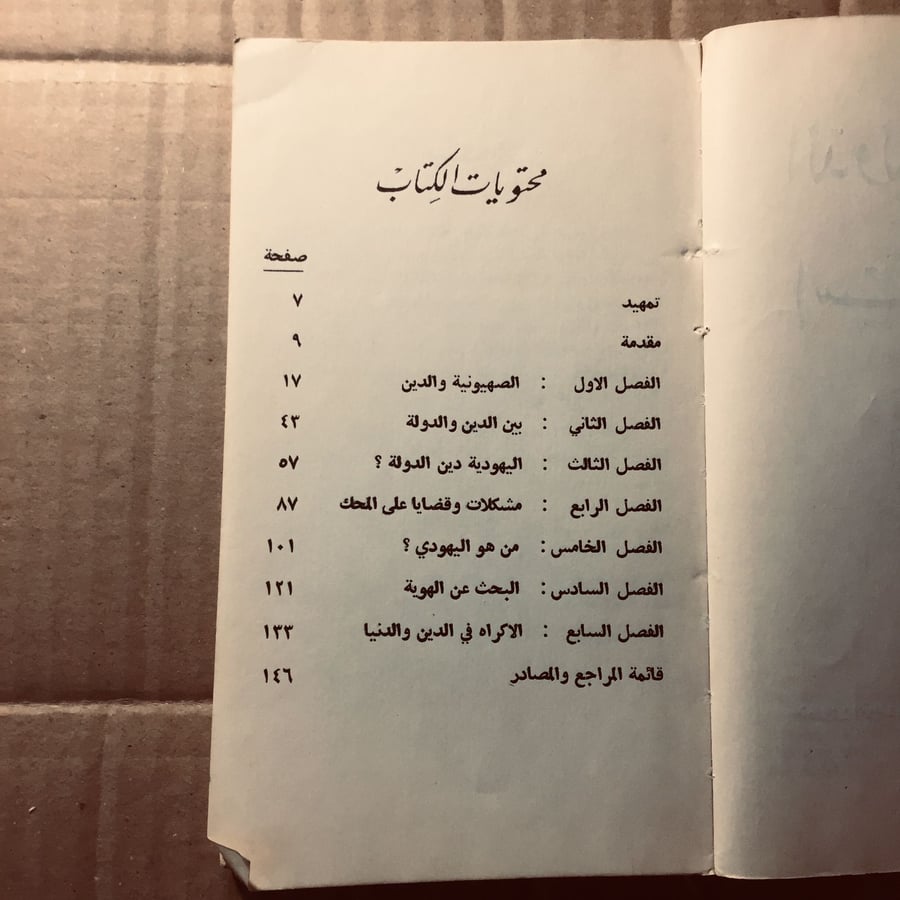 محتويات الكتاب
صفحة
تمهيد ٧
مقدمة ٩
الفصل الاول : الصهيونية والدين ١٧
الفصل الثاني : بين الدين والدولة ٤٣
الفصل الثالث : اليهودية دين الدولة ؟ ٥٧
الفصل الرابع : مشكلات وقضايا على المحك ٨٧
الفصل الخامس : من هو اليهودي ؟ ١٠١
الفصل السادس : البحث عن الهوية ١٢١
الفصل السابع : الاكراه في الدين والدنيا ١٣٣
قائمة المراجع والمصادر ١٤٦